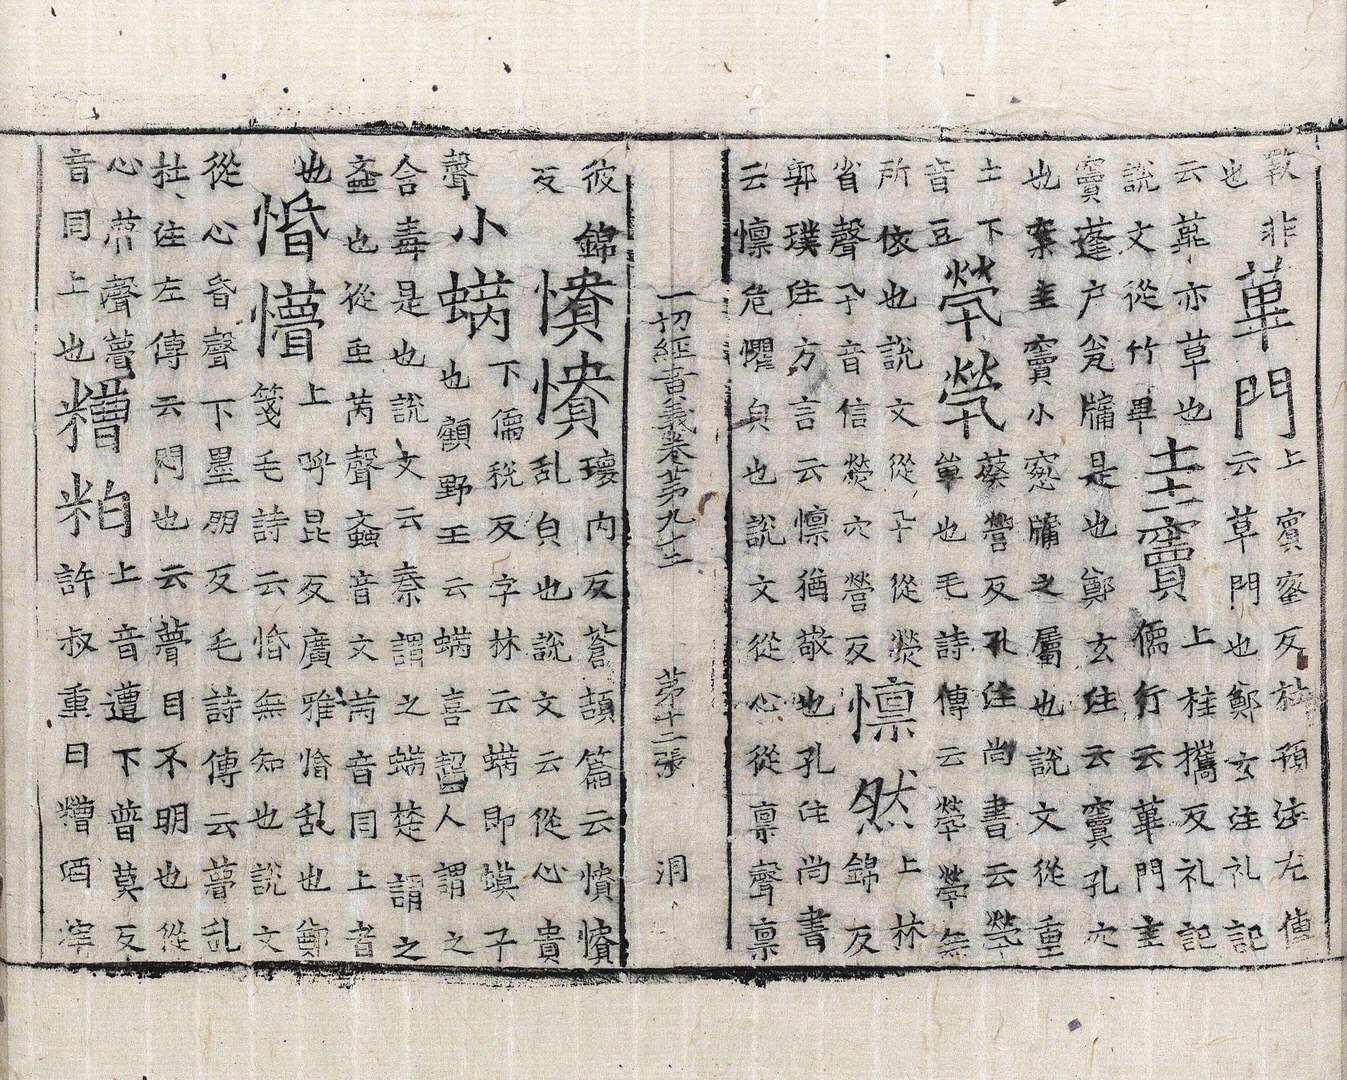 非
也
蓽門
上賓蜜反杜預注左傳
云草門也鄭玄注礼記
云蓽亦草也
說文從竹畢
圭竇
上桂攜反礼記
儒行云蓽門圭
竇蓬户瓮牖是也鄭玄注云竇孔穴
也案圭竇小窓牖之屬也說文從重
土下
音豆
煢煢
葵營反孔注尚書云煢
單也毛詩傳云煢煢無
所依也說文從卂從熒
省聲卂音信熒穴營反
懍然
上林
錦反
郭璞注方言云懍猶敬也孔注尚書
云懍危懼皃也說文從心從稟聲稟
一切經音義卷苐九十三 苐十二張 洞
彼錦
反
憒憒
瓌内反蒼頡篇云憒憒
乱皃也說文云從心貴
聲
小蜹
下儒稅反字林云蜹即蟆子
也顧野王云蜹喜齧人謂之
含毒是也說文云秦謂之蜹楚謂之
蚉也從虫芮聲蚉音文芮音同上者
也
惛懵
上呼昆反廣雅惛乱也鄭
箋毛詩云惛無知也說文
從心昏聲下墨朋反毛詩傳云懵乱
杜注左傳云悶也云瞢目不明也從
心瞢聲瞢
音同上也
糟粕
上音遭下普莫反
許叔重曰糟酒滓